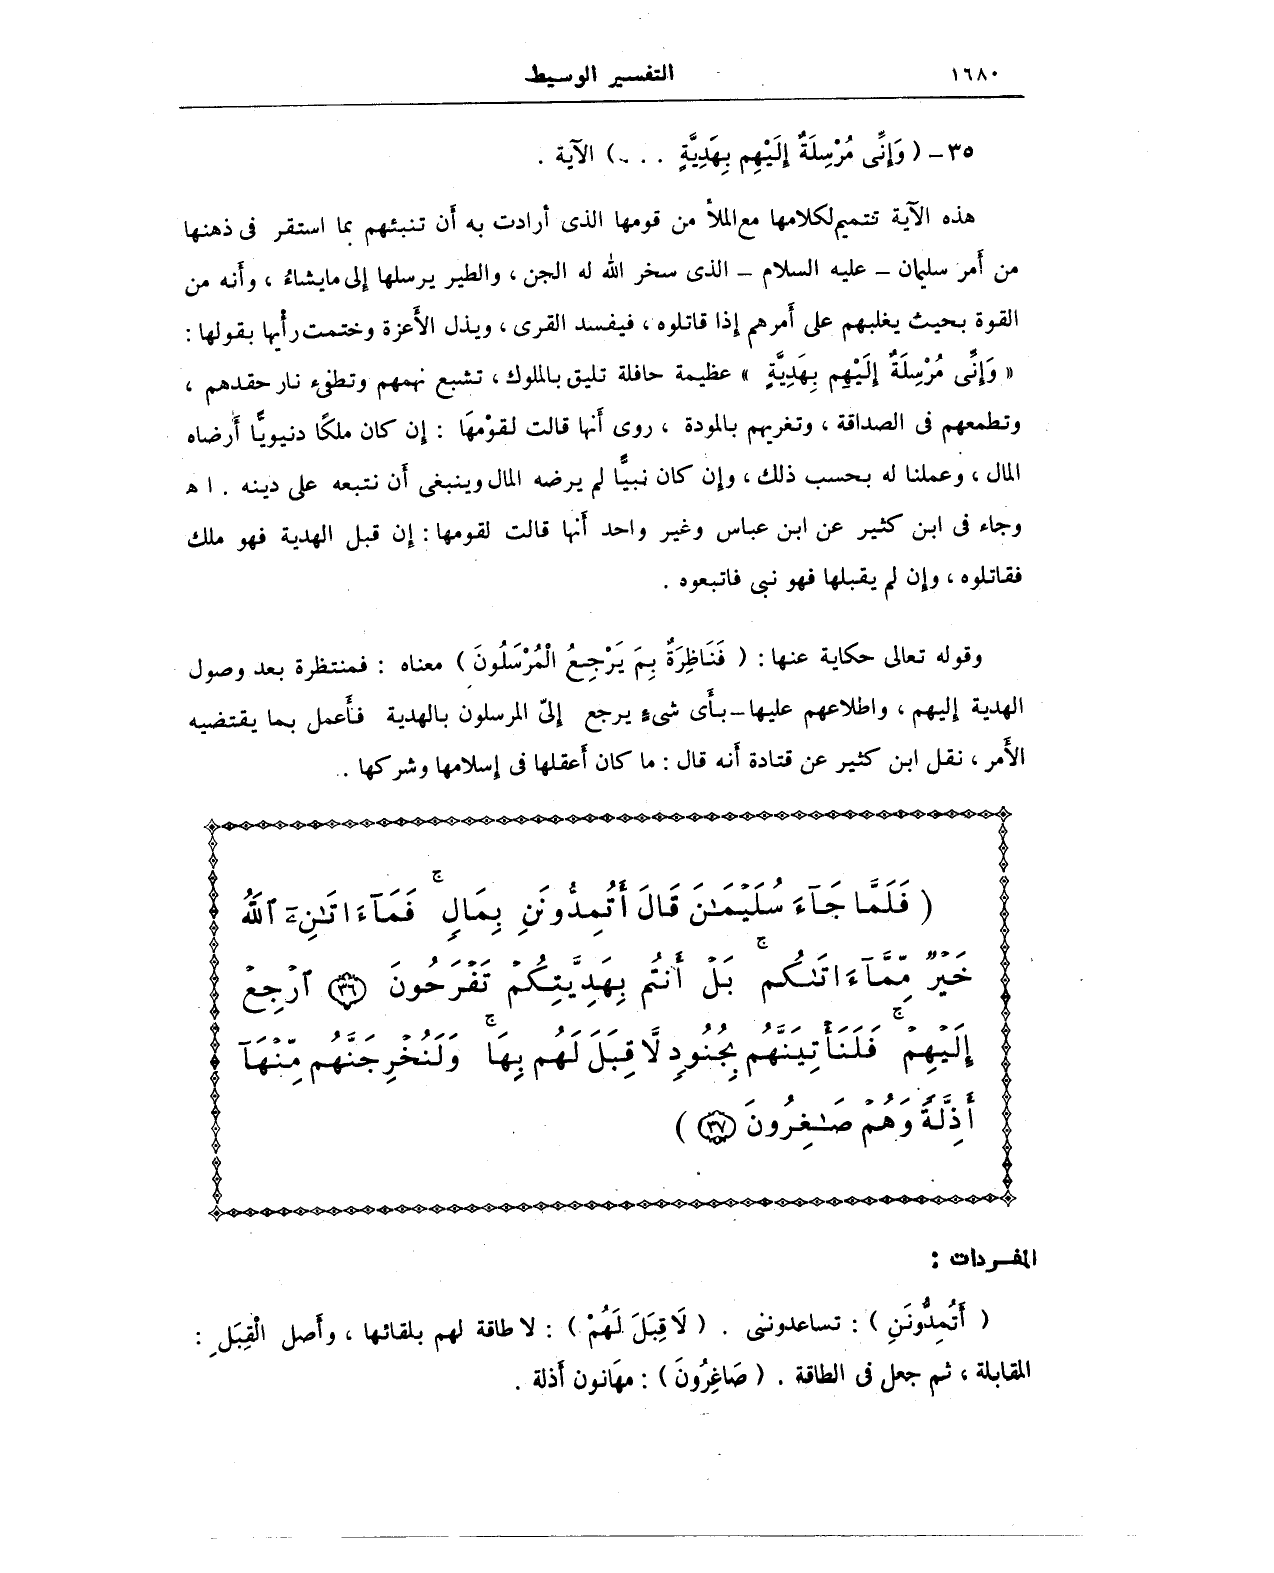 ١٦٨٠ التفسير الوسيط
٣٥ – ( وَإِنِّى مُرْسِلَةٌ إِلَيْهِم بِهَدِيَّةٍ . . . ) الآية .
هذه الآية تتميم لكلامها مع الملأ من قومها الذى أرادت به أن تنبئهم بما استقر فى ذهنها
من أمر سليمان – عليه السلام – الذى سخر الله له الجن ، والطير يرسلها إلى مايشاءُ ، وأنه من
القوة بحيث يغلبهم على أمرهم إذا قاتلوه ، فيفسد القرى ، ويذل الأعزة وختمت رأيها بقولها :
« وَإِنِّى مُرْسِلَةٌ إِلَيْهِم بِهَدِيَّةٍ » عظيمة حافلة تليق بالملوك ، تشبع نهمهم وتطفىء نار حقدهم ،
وتطمعهم فى الصداقة ، وتغريهم بالمودة ، روى أنها قالت لقوْمهَا : إن كان ملكًا دنيويًّا أرضاه
المال ، وعملنا له بحسب ذلك ، وإن كان نبيًّا لم يرضه المال وينبغى أن نتبعه على دينه . ا ه
وجاء فى ابن كثير عن ابن عباس وغير واحد أنها قالت لقومها : إن قبل الهدية فهو ملك
فقاتلوه ، وإن لم يقبلها فهو نبى فاتبعوه .
وقوله تعالى حكاية عنها : ( فَنَاظِرَةٌ بِمَ يَرْجِعُ الْمُرْسَلُونَ ) معناه : فمنتظرة بعد وصول
الهدية إليهم ، واطلاعهم عليها – بأى شىءٍ يرجع إلىّ المرسلون بالهدية فأعمل بما يقتضيه
الأمر ، نقل ابن كثير عن قتادة أنه قال : ما كان أعقلها فى إسلامها وشركها .
( فَلَمَّا جَآءَ سُلَيْمَـٰنَ قَالَ أَتُمِدُّونَنِ بِمَالٍ ۚ فَمَآ ءَاتَـٰنِۦَ ٱللَّهُ
خَيْرٌ مِّمَّآ ءَاتَـٰكُم ۚ بَلْ أَنتُم بِهَدِيَّتِكُمْ تَفْرَحُونَ ٣٦ ٱرْجِعْ
إِلَيْهِمْ ۚ فَلَنَأْتِيَنَّهُم بِجُنُودٍ لَّا قِبَلَ لَهُم بِهَا ۚ وَلَنُخْرِجَنَّهُم مِّنْهَآ
أَذِلَّةً وَهُمْ صَـٰغِرُونَ ٣٧ )
المفـردات :
( أَتُمِدُّونَنِ ) : تساعدوننى . ( لَا قِبَلَ لَهُمْ ) : لا طاقة لهم بلقائها ، وأصل الْقِبَلِ :
المقابلة ، ثم جعل فى الطاقة . ( صَاغِرُونَ ) : مهَانون أذلة .